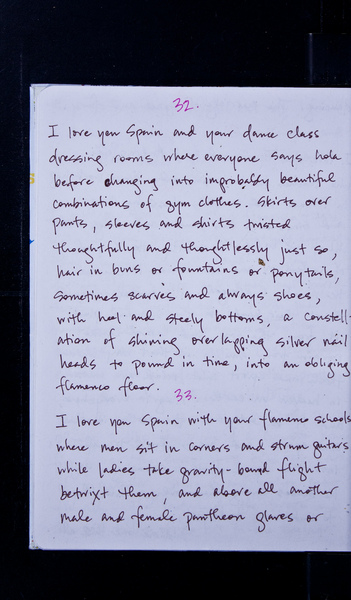 32.
I love you Spain and your dance class
dressing rooms where everyone says hola
before changing into improbably beautiful
combinations of gym clothes. Skirts over
pants, sleeves and shirts twisted
thoughtfully and thoughtlessly just so,
hair in buns or fountains or ponytails,
sometimes scarves and always shoes,
with heel and steely bottoms, a constell-
ation of shining overlapping silver nail
heads to pound in time, into an obliging
flamenco floor.
33.
I love you Spain with your flamenco schools
where men sit in corners and strum guitars
while ladies take gravity-bound flight
betwixt them, and above all another
male and female pantheon glares or